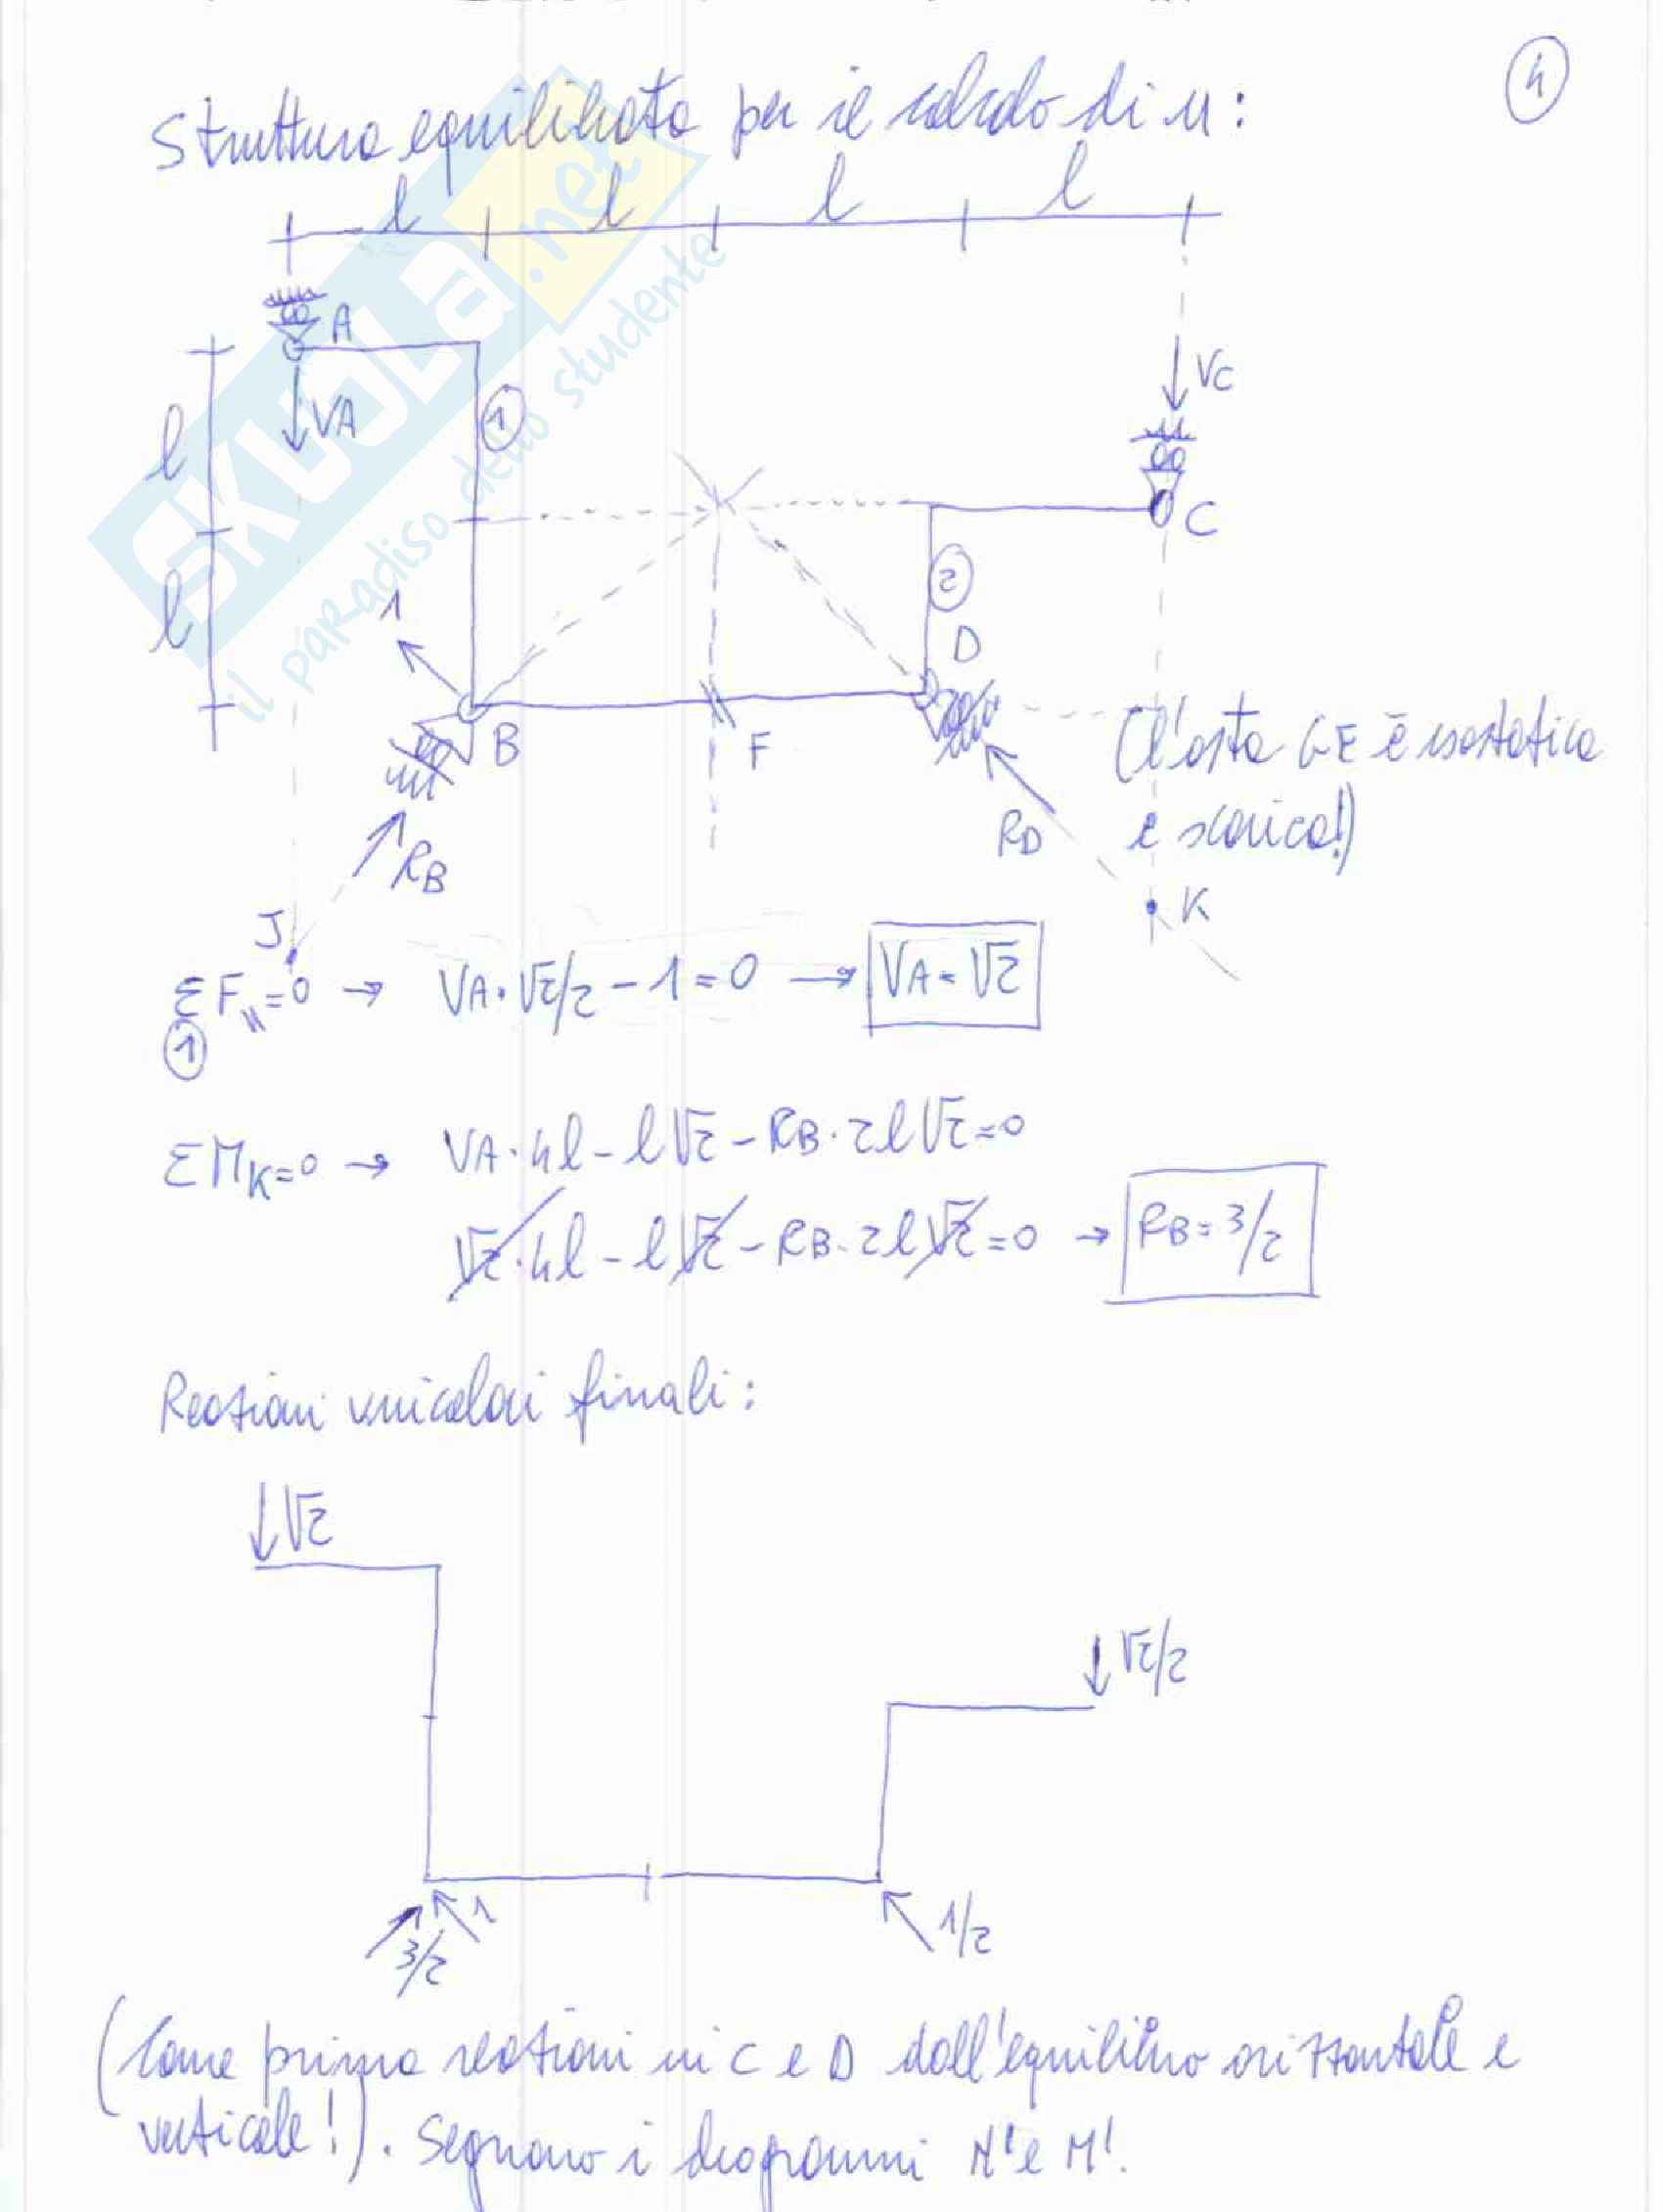 4
Struttura equilibrata per il calcolo di u:
l l l l
A
VA
1
VC
l
C
2
l
1
D
B
F
(l'asta GE è isostatica
e scarica!)
RD
RB
K
J
ΣF\\=0 → VA·√2/2 - 1 = 0 → VA = √2
1
ΣMK=0 → VA·4l - l√2 - RB·2l√2=0
√2·4l - l√2 - RB·2l√2=0 → RB=3/2
Reazioni vincolari finali:
√2
√2/2
1
3/2
1/2
(Come prima reazioni in C e D dall'equilibrio orizzontale e
verticale!). Seguono i diagrammi N' e M'.
SKUOLA.net
il paradiso dello studente